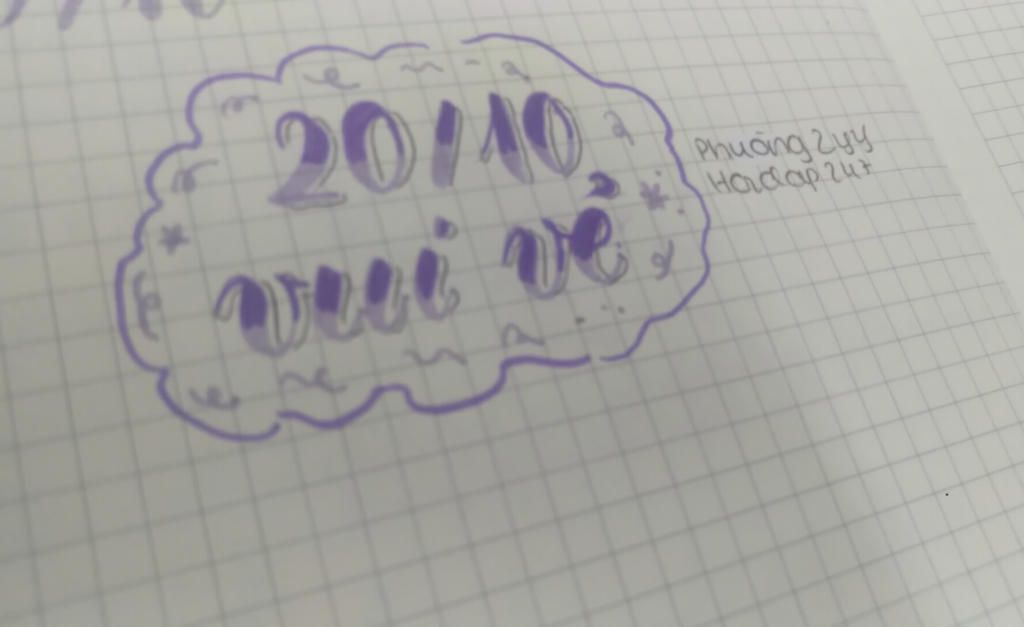 20/10
vui vẻ
Phuong2yy
Hoidap247